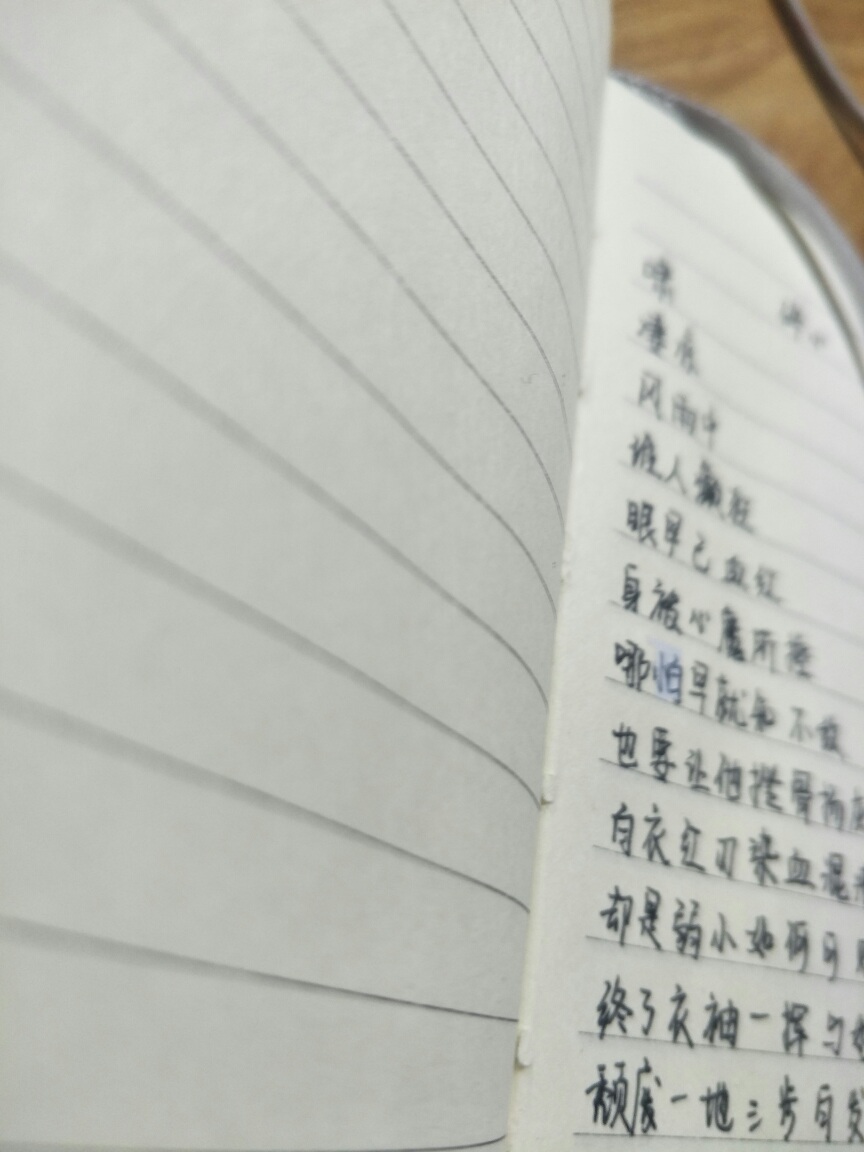 风雨中
谁人癫狂
眼早已血红
身被心魔所控
哪怕早就知不敌
也要让他挫骨扬
白衣红刃染血混
却是弱小如何可
终了衣袖一挥与
颓废一地三步自